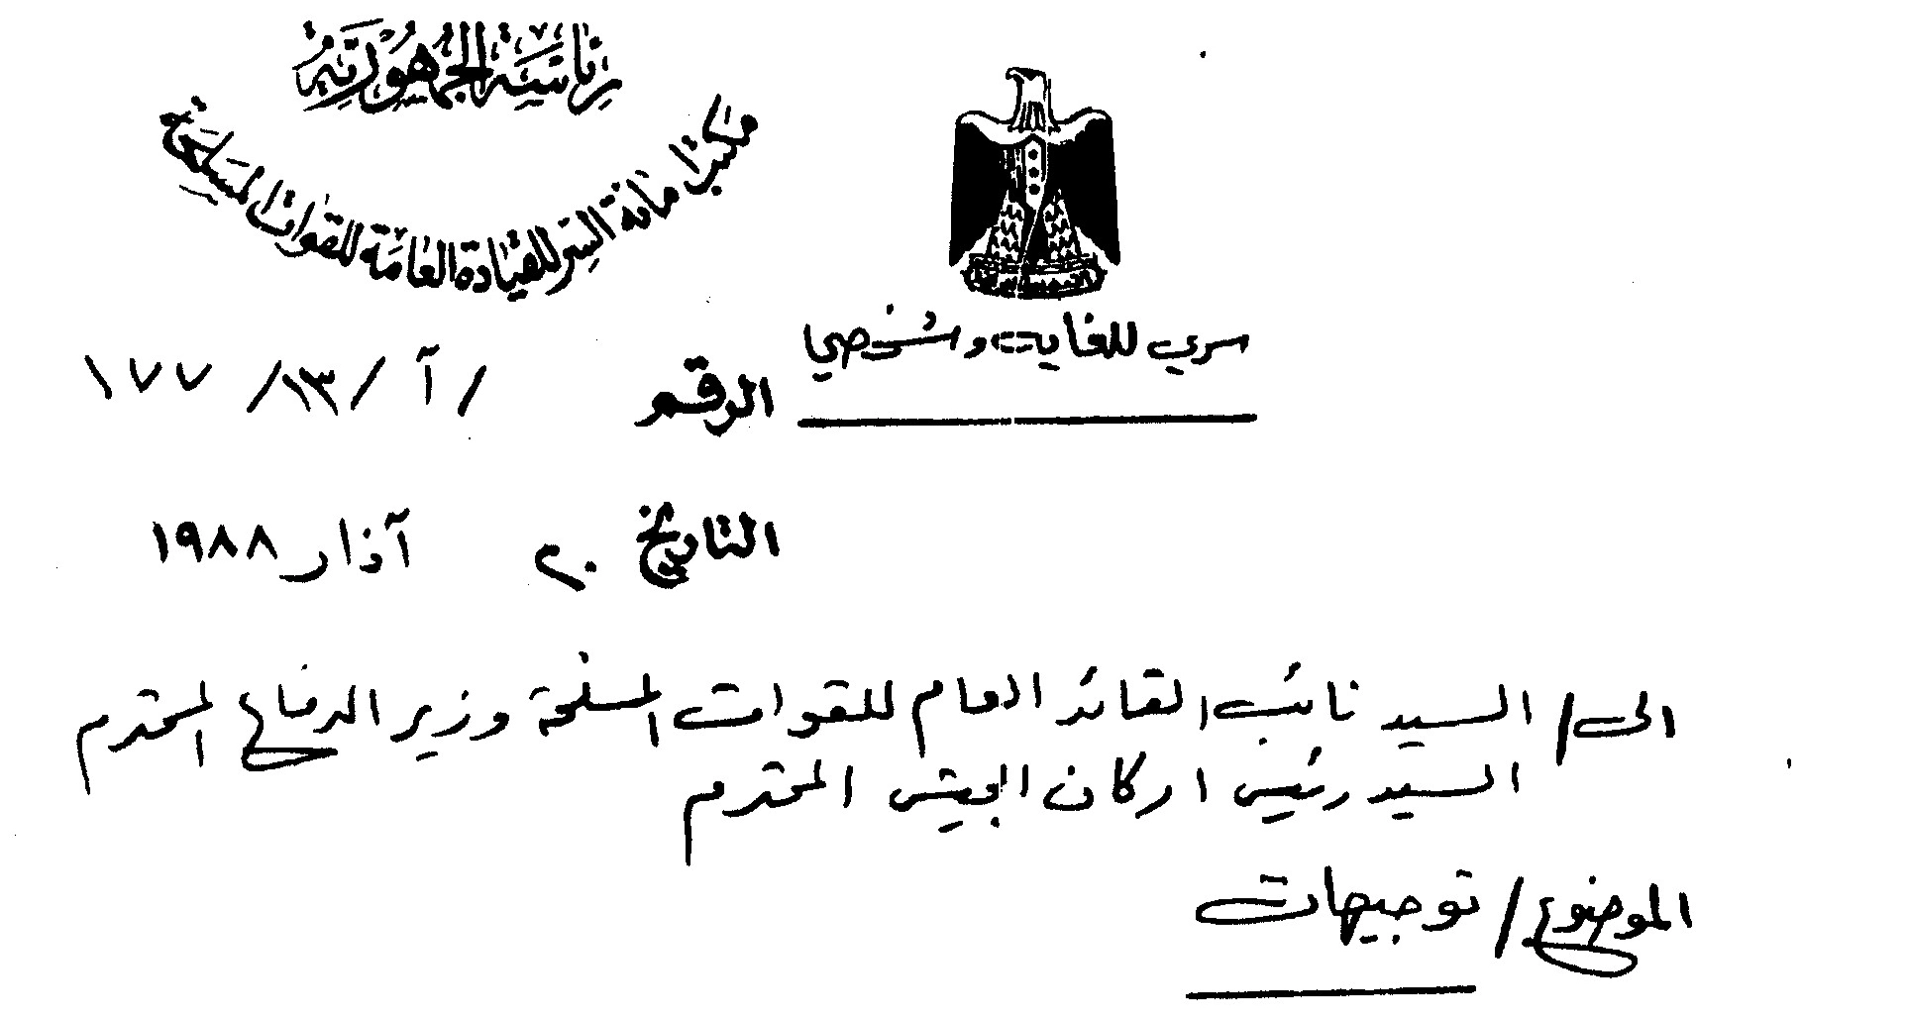 رئاسة الجمهورية
مكتب أمانة السر للقيادة العامة للقوات المسلحة
سري للغاية وشخصي
الرقم / آ / ١٣ / ١٧٧
التاريخ ٢٠ آذار ١٩٨٨
الى / السيد نائب القائد العام للقوات المسلحة وزير الدفاع المحترم
السيد رئيس اركان الجيش المحترم
الموضوع / توجيهات